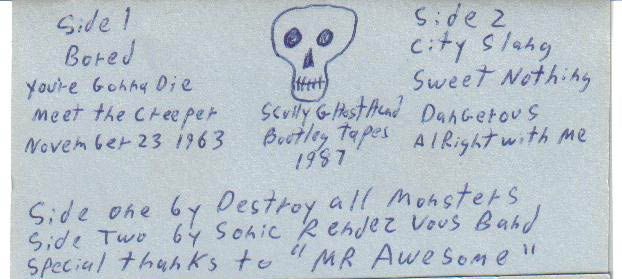 Side 1
Bored
You're Gonna Die
Meet the Creeper
November 23 1963
Scully GHostHead
Bootleg Tapes
1987
Side 2
City Slang
Sweet Nothing
Dangerous
AlRight with Me
Side one by Destroy all Monsters
Side Two by Sonic Rendez Vous Band
Special thanks to "MR Awesome"